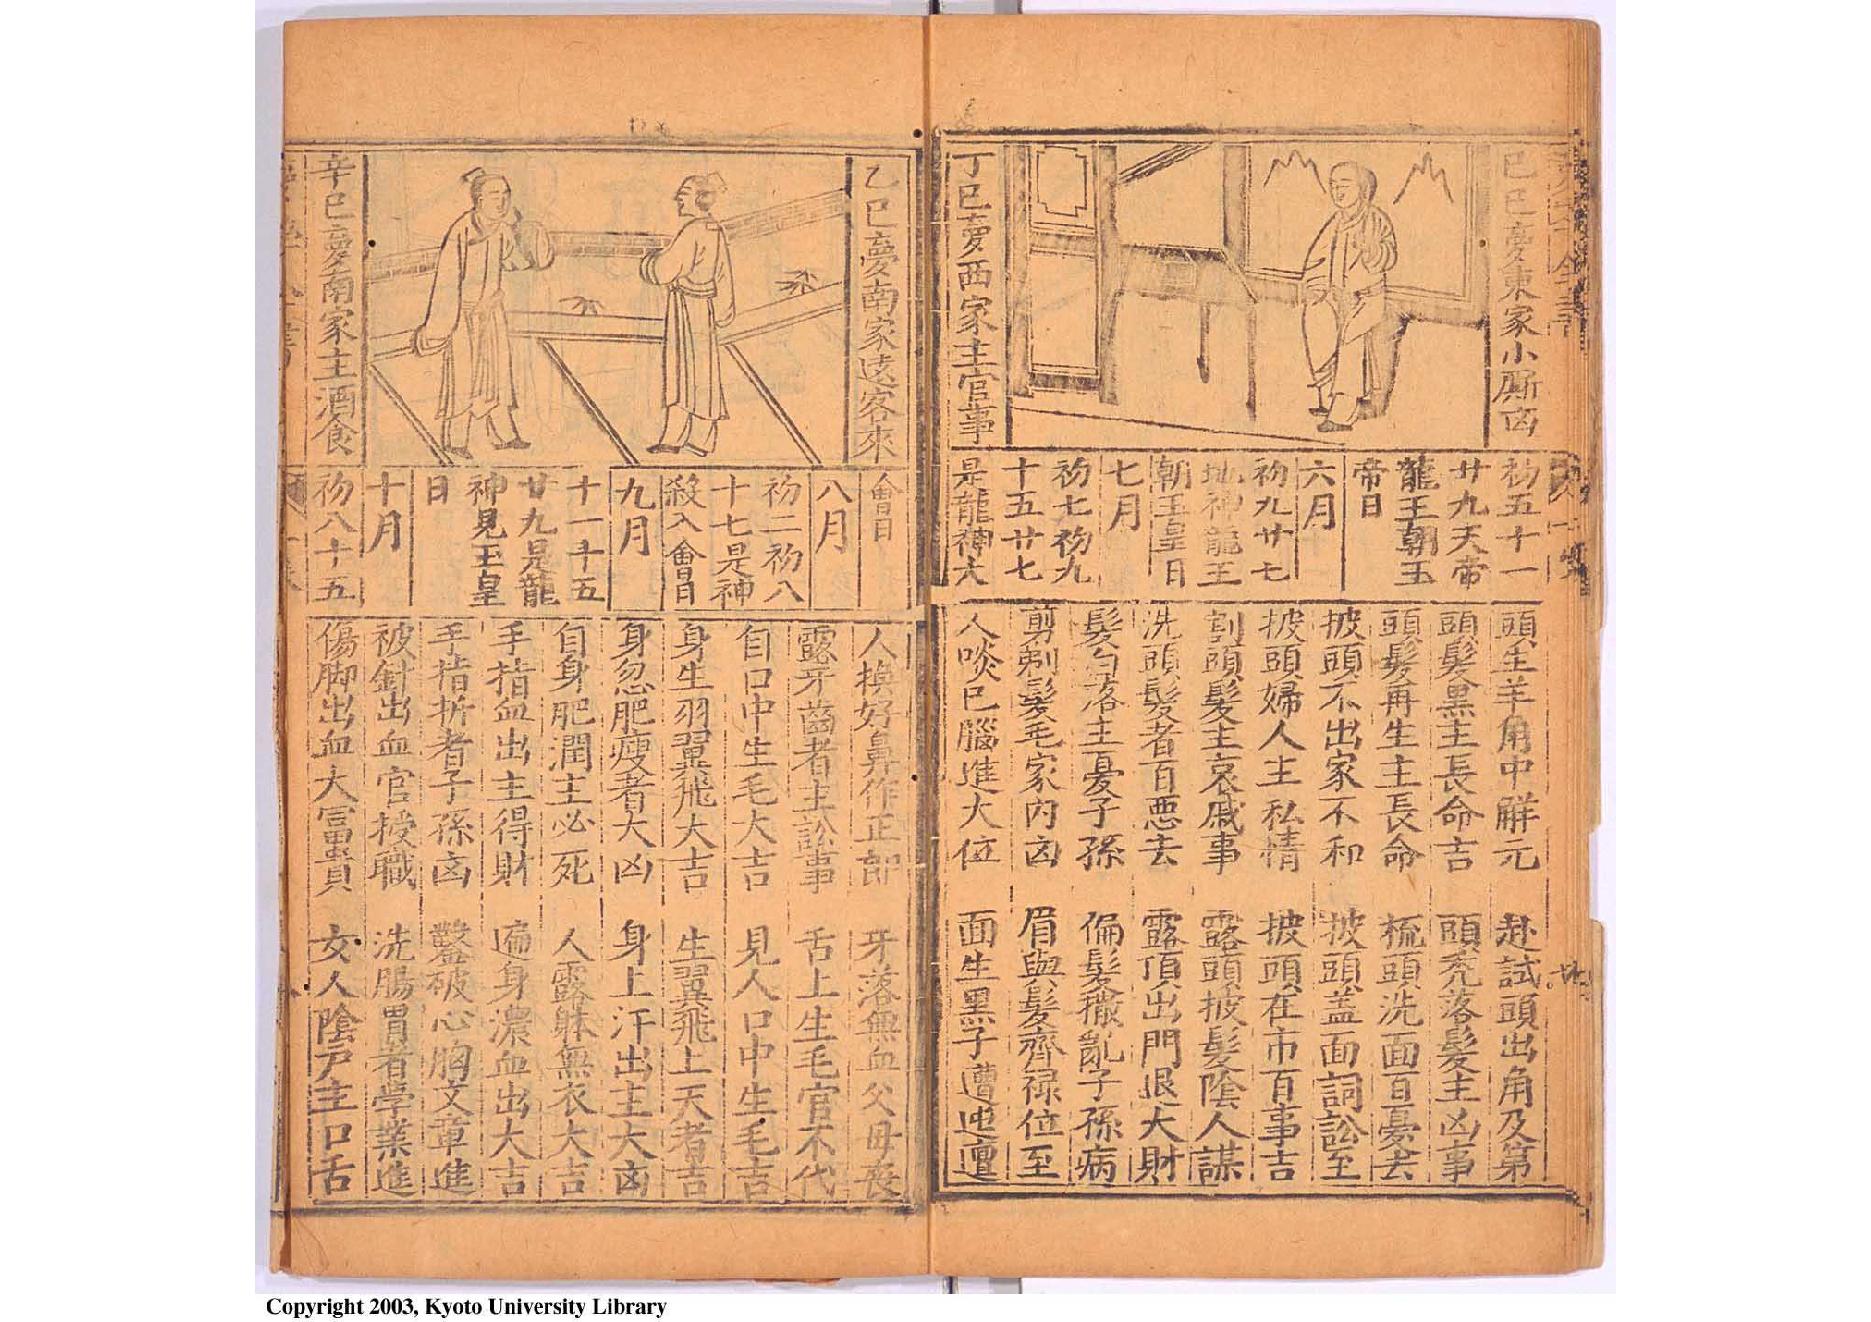 己巳夢東家小厮凶
丁巳夢西家主官事
初五十一
廿九天帝
龍王朝玉
帝日
六月
初九廿七
地神龍王
朝玉皇日
七月
初七初九
十五廿七
是龍神大
頭生羊角中解元
頭髮黑主長命吉
頭髮再生主長命
披頭不出家不和
披頭婦人主私情
割頭髮主哀戚事
洗頭髮者百悪去
髪勾落主憂子孫
剪剃髮毛家内凶
人啖巳腦進大位
赴試頭出角及第
頭禿落髮主凶事
梳頭洗面百憂去
披頭盖面詞訟至
披頭在市百事吉
露頭披髮陰人謀
露頂出門退大財
偏髪撒亂子孫病
眉與髮齊禄位至
面生黑子遭迍邅
乙巳夢南家遠客來
辛巳夢南家主酒食
會日
八月
初二初八
十七是神
殺入會日
九月
十一十五
廿九是龍
神見玉皇
日
十月
初八十五
人換好鼻作正郎
露牙齒者主訟事
自口中生毛大吉
身生羽翼飛大吉
身忽肥瘦者大凶
自身肥潤主必死
手指血出主得財
手指折者子孫凶
被針出血官授職
傷脚出血大富貴
牙落無血父母喪
舌上生毛官不代
見人口中生毛吉
生翼飛上天者吉
身上汗出主大凶
人露躰無衣大吉
遍身濃血出大吉
鑿破心胸文章進
洗腸胃者学業進
女人陰戸主口舌
Copyright 2003, Kyoto University Library